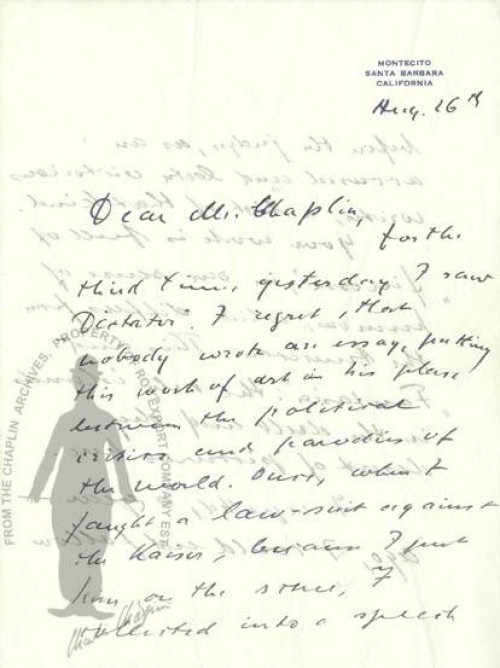 MONTECITO
SANTA BARBARA
CALIFORNIA
Aug. 26th
Dear Mr. Chaplin,
for the
third time, yesterday I saw
"Dictator". I regret, that
nobody wrote an essay, putting
this work of art in his place
between the political
critics and parodies of
the world. Once, when I
faught a law-suit against
the Kaiser, because I put
him on the scene, I
into a speech
FROM THE CHAPLIN ARCHIVES, PROPERTY OF ROY EXPORT COMPANY EST.
Charlie Chaplin